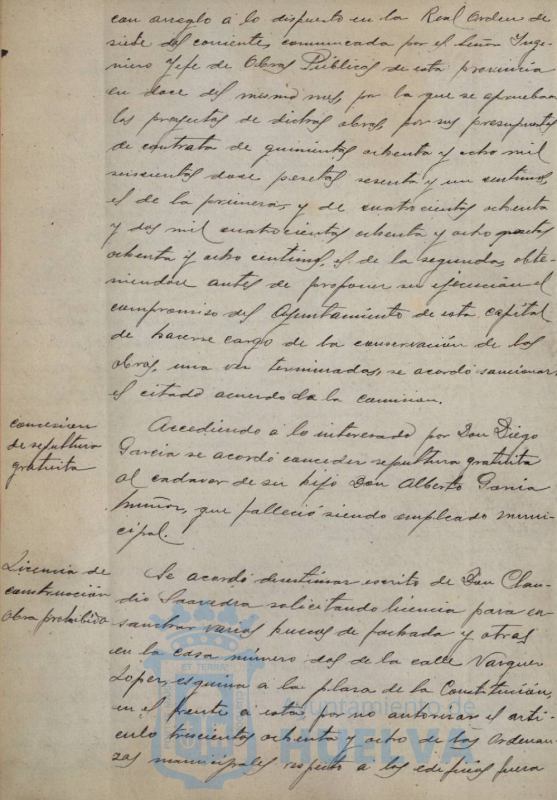 con arreglo á lo dispuesto en la Real Orden de
siete del corriente, comunicada por el Señor Inge-
niero Jefe de Obras Públicas de esta provincia
en doce del mismo mes, por la que se aprueban
los proyectos de dichas obras, por sus presupuestos
de contrata de quinientas ochenta y ocho mil
seiscientas doce pesetas sesenta y un centimos,
el de la primera, y de cuatrocientas ochenta
y dos mil cuatrocientas ochenta y ocho pesetas
ochenta y ocho centimos, el de la segunda, obte-
niendose antes de proponer su ejecución el
compromiso del Ayuntamiento de esta capital
de hacerse cargo de la conservación de las
obras, una vez terminadas, se acordó sancionar
el citado acuerdo de la comision.
concesion
de sepultura
gratuita
Accediendo á lo interesado por Don Diego
Garcia se acordó conceder sepultura gratuita
al cadaver de su hijo Don Alberto Garcia
Muñoz, que falleció siendo empleado muni-
cipal.
Licencia de
construcción
obra prohibida
Se acordó desestimar escrito de Don Clau-
dio Saavedra solicitando licencia para en-
sanchar varios huecos de fachada y otras
en la casa número dos de la calle Vazquez
Lopez, esquina a la plaza de la Constitución,
en el frente á esta, por no autorizar el arti-
culo trescientos ochenta y ocho de las Ordenan-
zas municipales respecto a los edificios fuera
ET TERRA
Ayuntamiento de
HUELVA